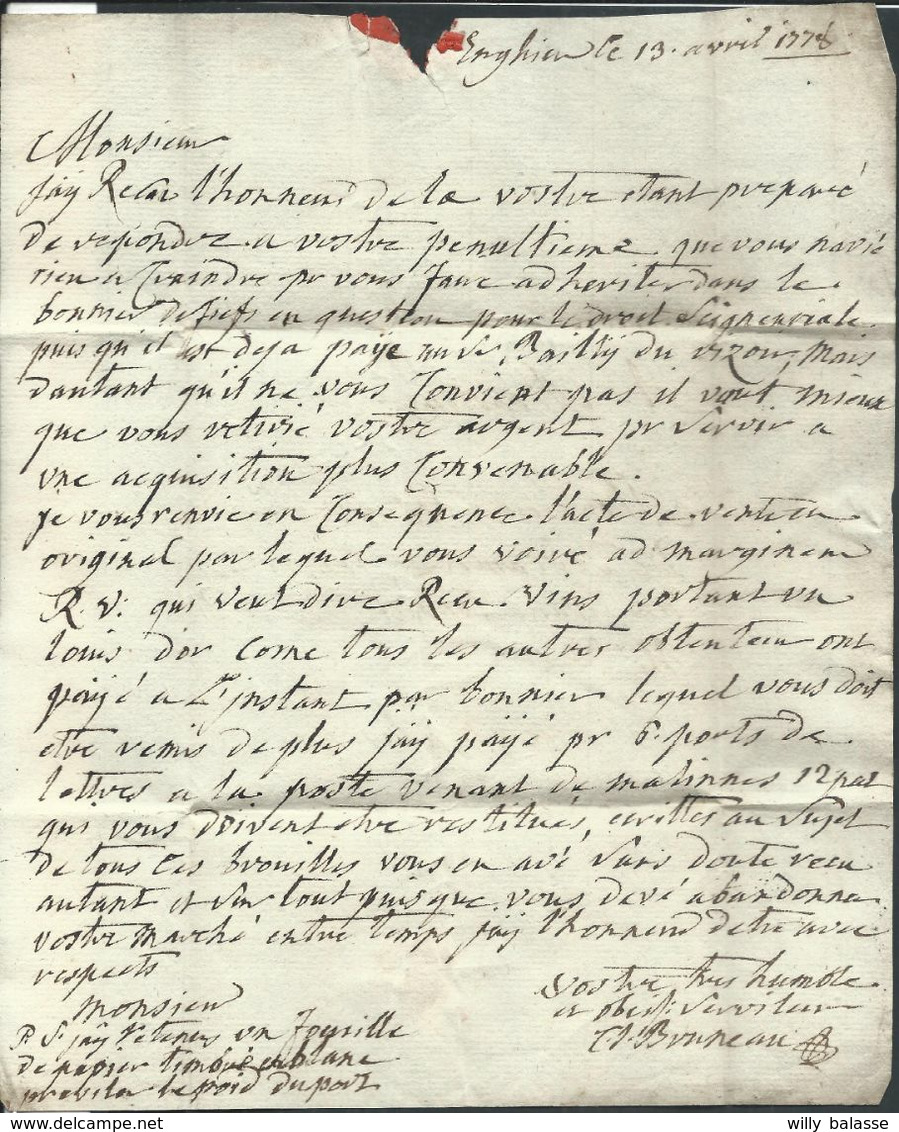 Enghien le 13. avril 1778
Monsieur
jaÿ Recu l'honneur de la vostre etant preparé
de repondre a vostre penultieme que vous navié
rien a Craindre pr vous faire adheriter dans le
bonnier de fiefs en question pour le droit Seigneuriale
puis qu'il est deja paÿe au Sr Bailly du rizou, mais
dautant qu'il ne vous Convient pas il vaut mieux
que vous retirié vostre argent pr Servir a
une acquisition plus Convenable.
je vous renvie en Consequence l'acte de vente en
original par lequel vous voiré ad marginem
R. V: qui veut dire Recu Vins portant un
louis dor come tous les autres obtenteur ont
paÿé a L'jnstant par bonnier lequel vous doit
etre remis de plus jaÿ paÿé pr 6. ports de
lettres a la poste venant de malinnes 12 pat
qui vous doivent etre restitués, ecrittes au Sujet
de tous ces brouilles vous en avé Sans doute recu
autant et Sur tout puisque vous devé abandonner
vostre marché entre temps jaÿ l'honneur detre avec
respects
Monsieur
vostre tres humble
et obeist: Serviteur
Bruneau
P. S. jaÿ retenus un feuille
de papier timbré en blanc
le poid du port
willy balasse